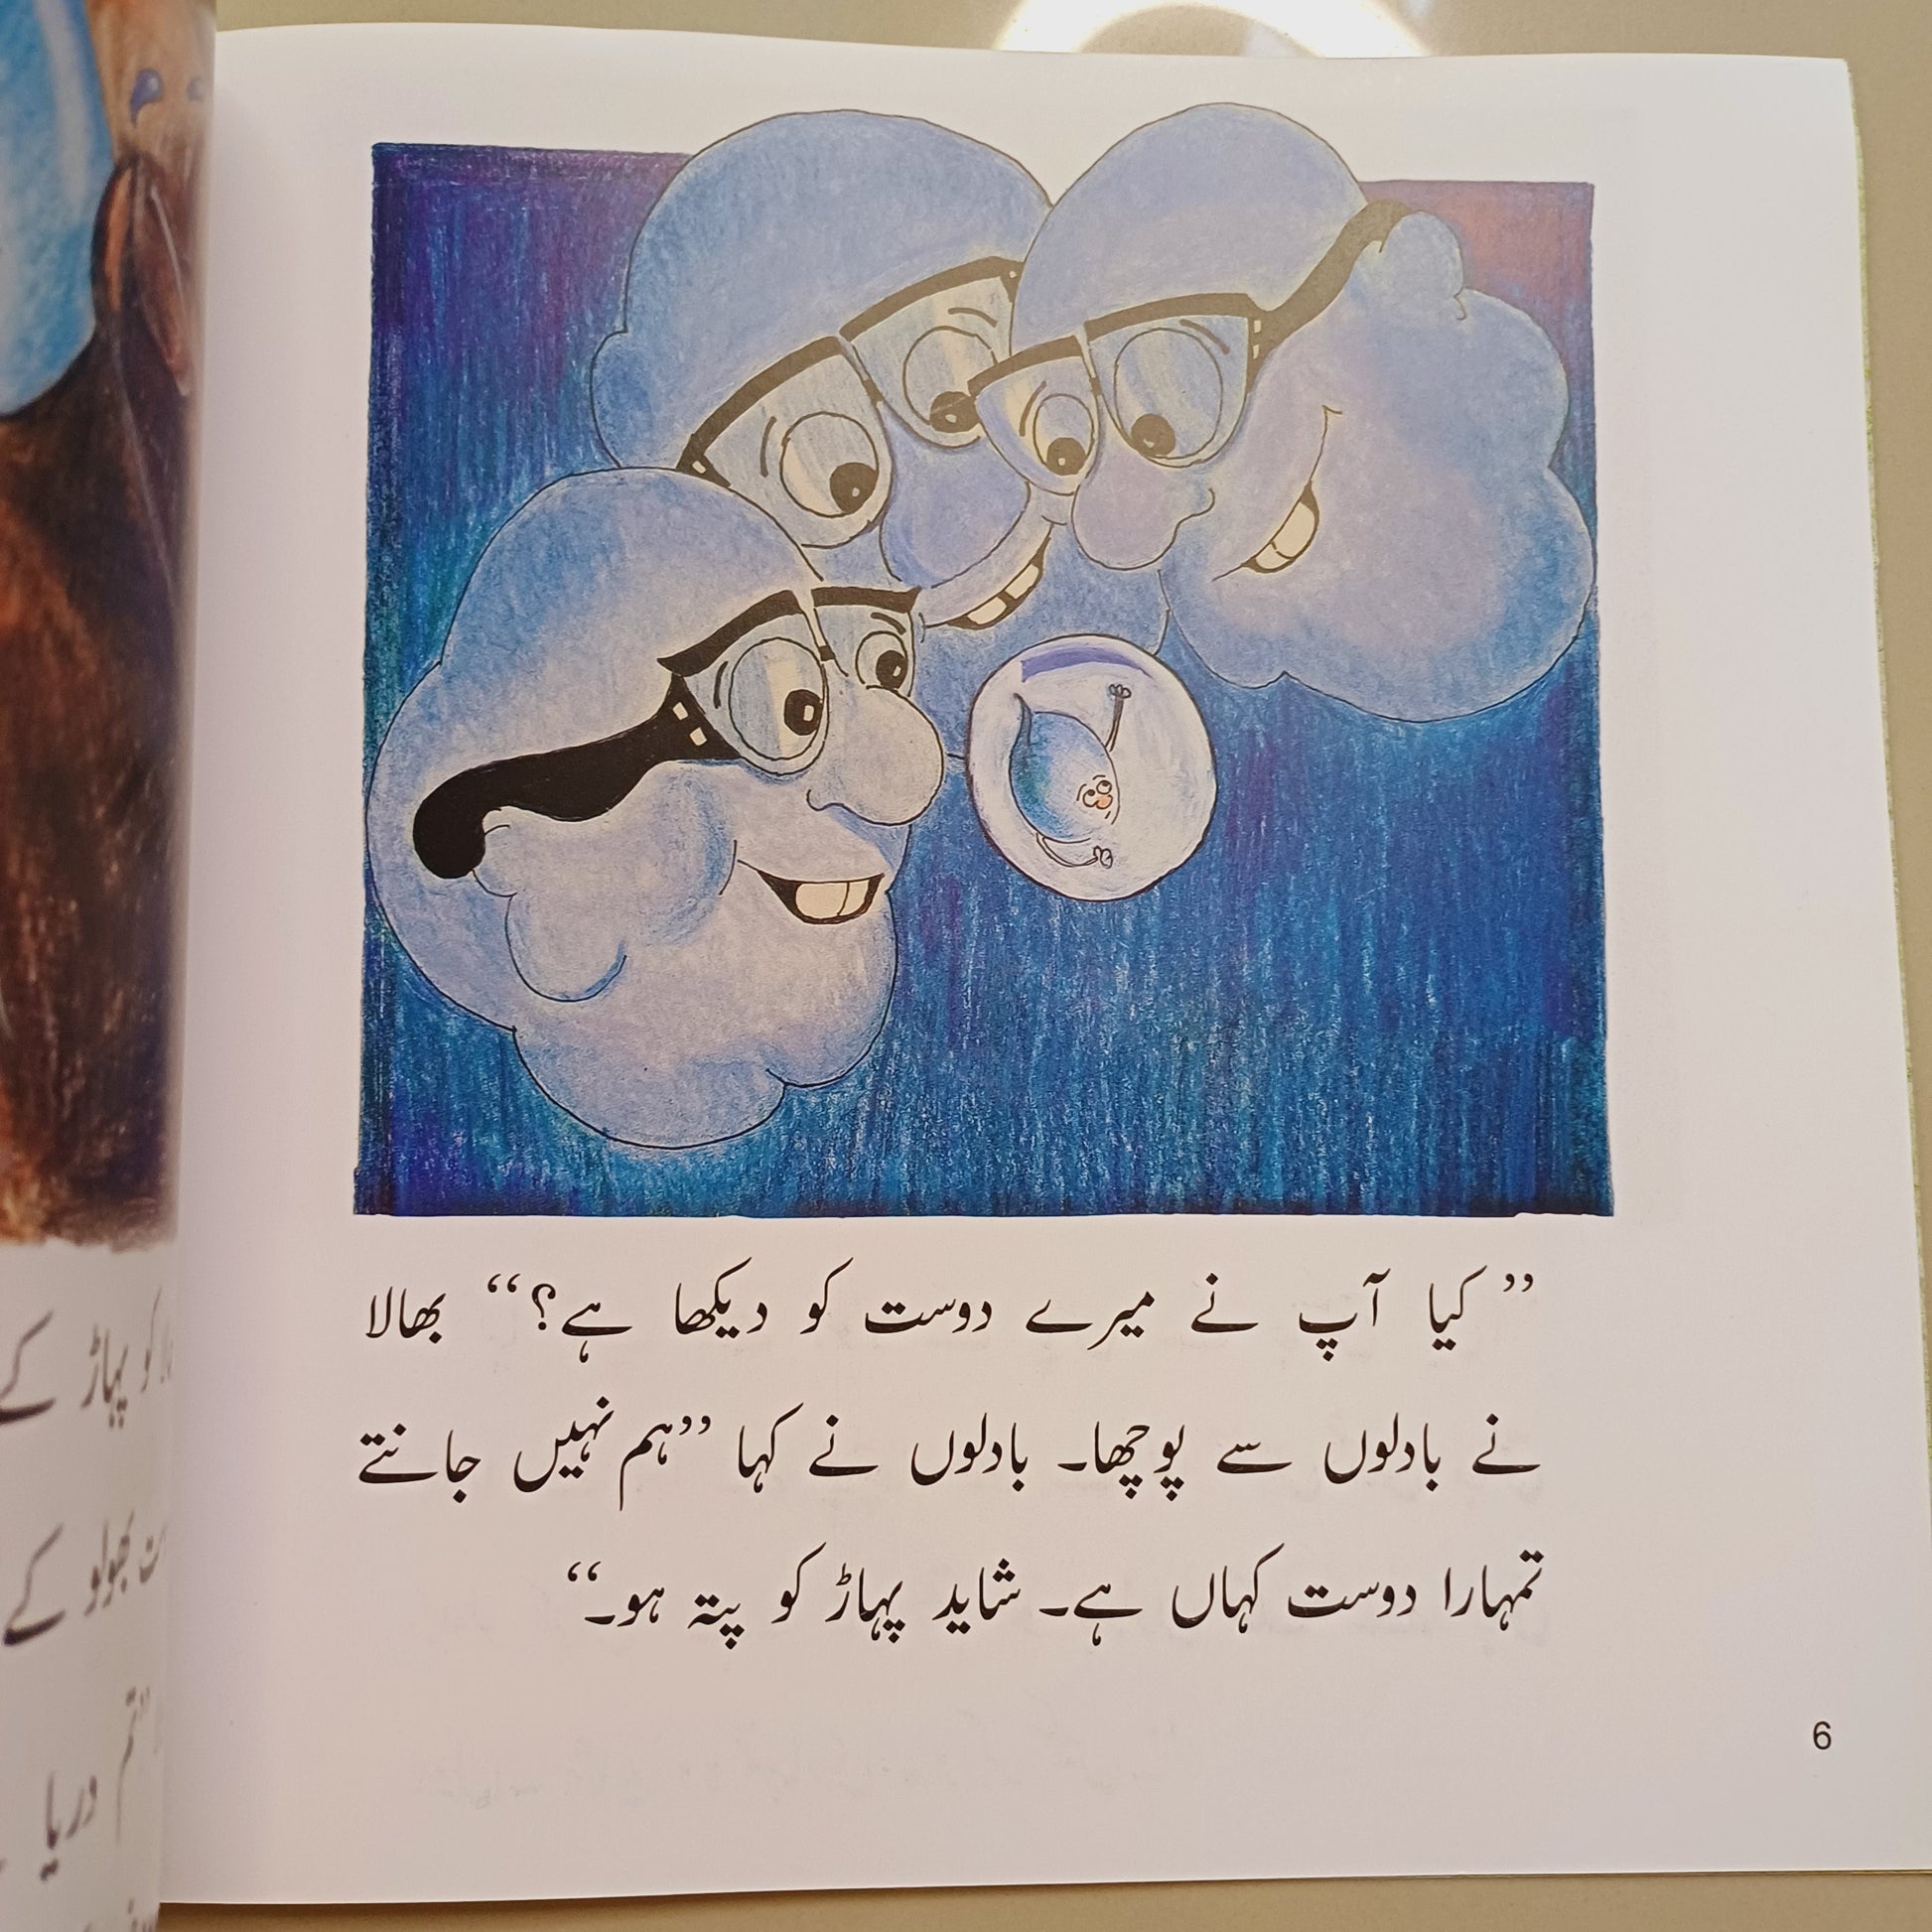 ” کیا آپ نے میرے دوست کو دیکھا ہے؟“ بھالا
نے بادلوں سے پوچھا۔ بادلوں نے کہا ”ہم نہیں جانتے
تمہارا دوست کہاں ہے۔ شاید پہاڑ کو پتہ ہو۔“
6
کو پہاڑ کے
بھولو کے
”تم
دریا